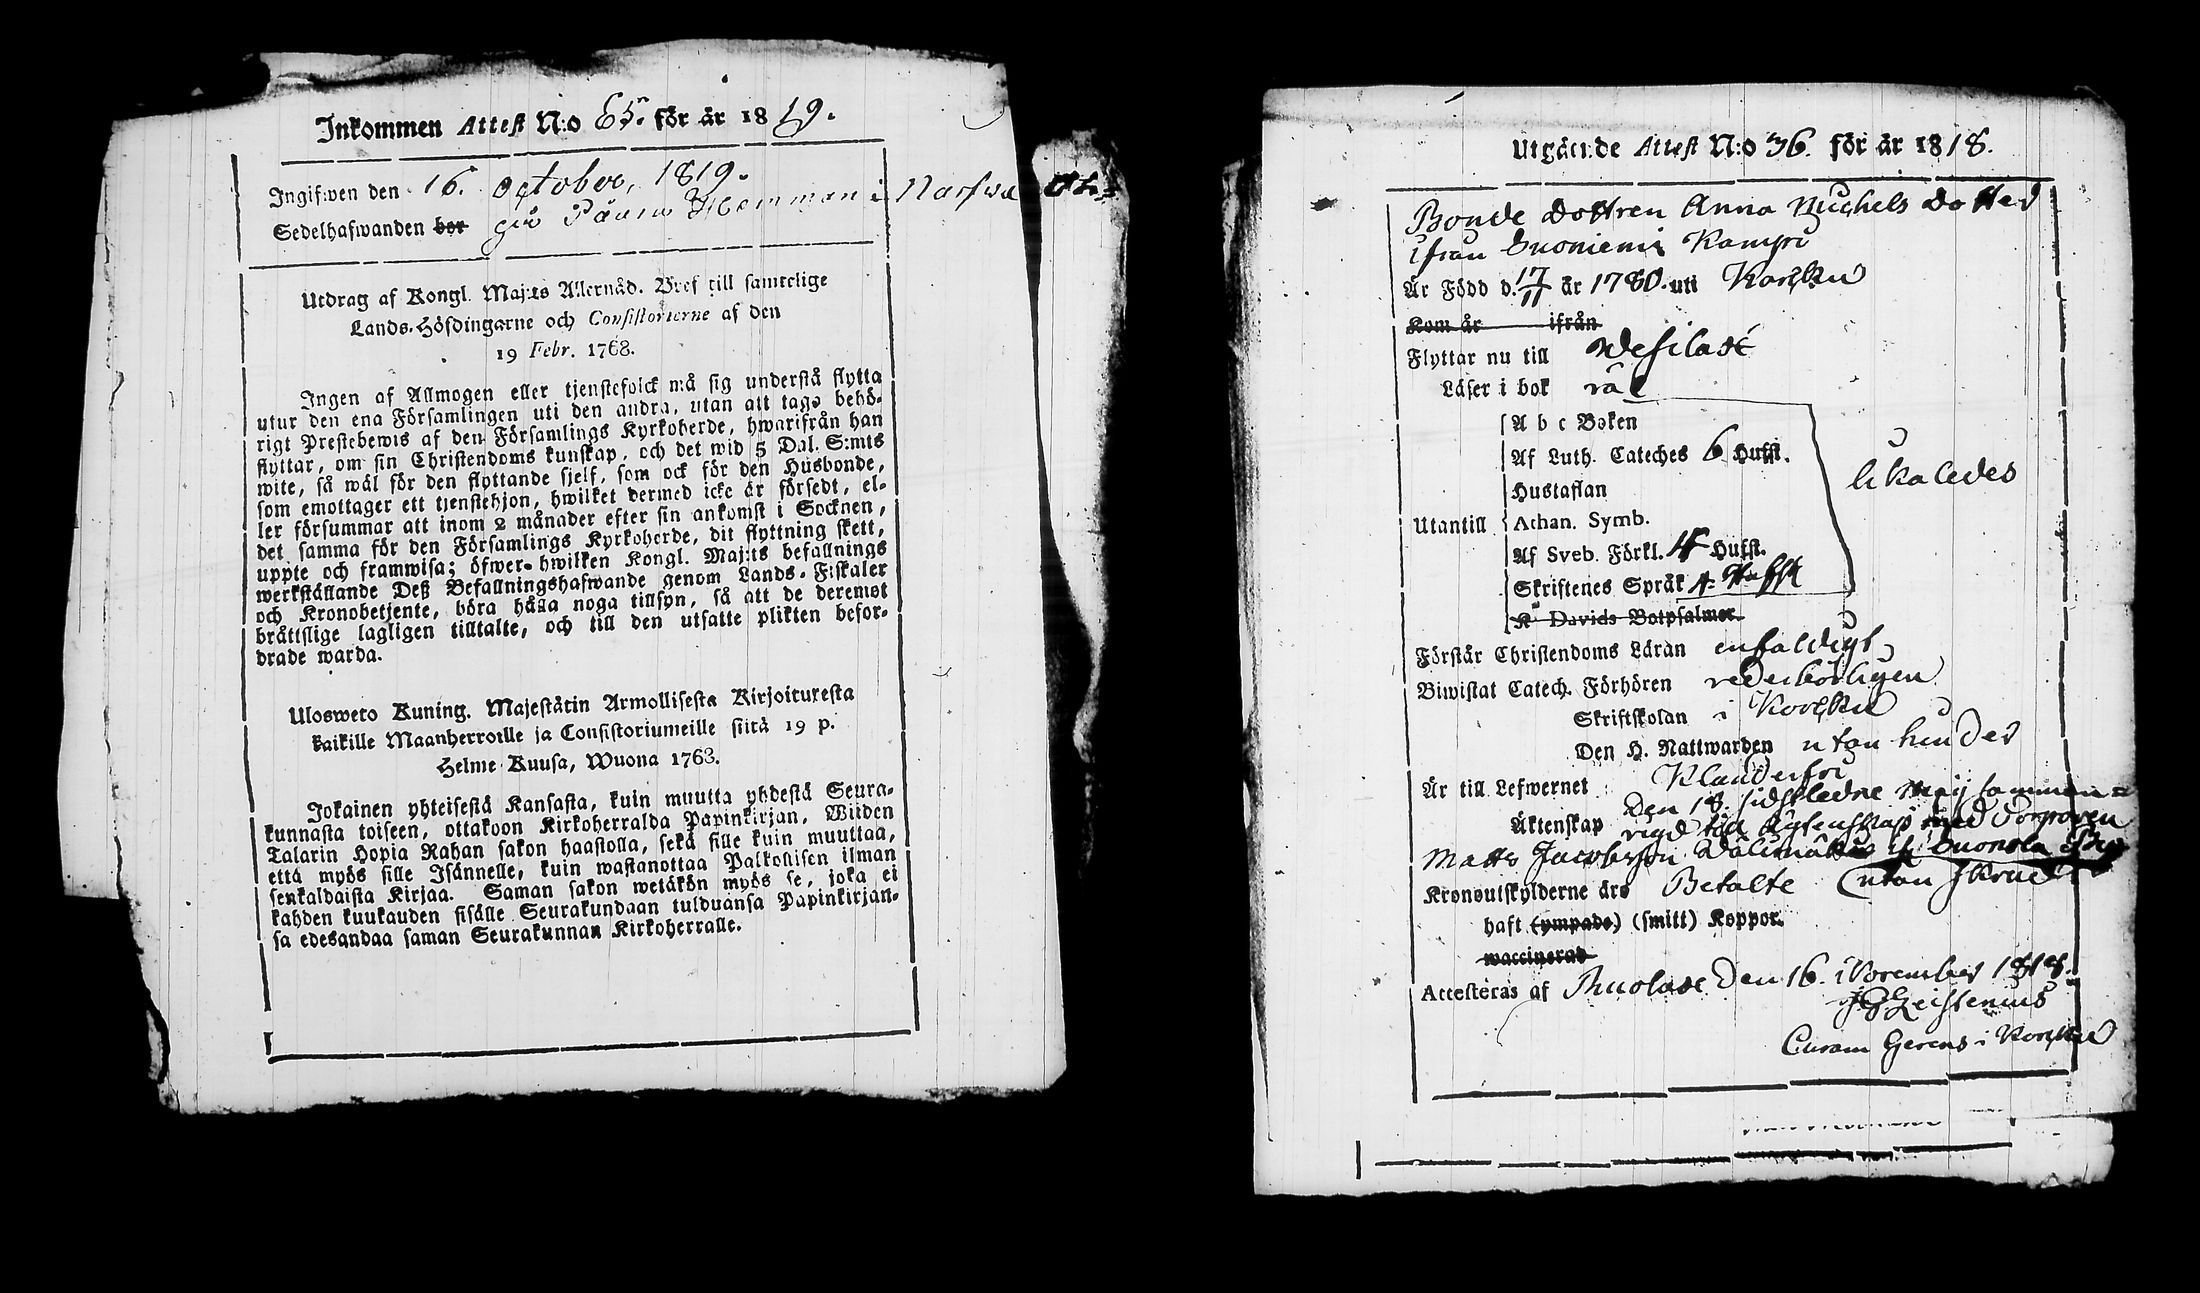 Inkommen Attest N:o 65. för år 1819.
Ingifwen den 16. October, 1819.
Sedelhafwanden bor Hemman i
Utdrag af Kongl. Maj:ts Allernåd. Bref till samtelige
Lands-Höfdingarne och Consistorierne af den
19 Febr. 1768.
Ingen af Allmogen eller tjenstefolck må sig understå flytta
utur den ena Församlingen uti den andra, utan att taga behö-
rigt Prestebewis af den Församlings Kyrkoherde, hwarifrån han
flyttar, om sin Christendoms kunskap, och det wid 5 Dal. S:mts
wite, så wäl för den flyttande sjelf, som ock för den Husbonde,
som emottager ett tjenstehjon, hwilket dermed icke är försedt, el-
ler försummar att inom 2 månader efter sin ankomst i Socknen,
det samma för den Församlings Kyrkoherde, dit flyttning skett,
uppte och framwisa; öfwer-hwilken Kongl. Maj:ts befallnings
werkställande Deß Befallningshafwande genom Lands-Fiskaler
och Kronobetjente, böra hålla noga tillsyn, så att de deremot
bråttslige lagligen tilltalte, och till den utsatte plikten befor-
drade warda.
Ulosweto Kuning. Majestätin Armollisesta Kirjoituresta
kaikille Maanherroille ja Consistoriumeille siitä 19 p.
Helme Kuusa, Wuona 1768.
Jokainen yhteisestä Kansasta, kuin muutta yhdestä Seura-
kunnasta toiseen, ottakoon Kirkoherralda Papinkirjan, Wiiden
Talarin Hopia Rahan sakon haastolla, sekä sille kuin muuttaa,
että myös sille Isännelle, kuin wastanottaa Palkollisen ilman
senkaldaista Kirjaa. Saman sakon wetäkön myös se, joka ei
kahden kuukauden sisälle Seurakundaan tulduansa Papinkirjan-
sa edesandaa saman Seurakunnan Kirkoherralle.
Utgående Attest N:o 36. för år 1818.
Bonde Dottren Anna Michels Dotter
ifrån Suoniemi
Är Född d. 17/11 år 1780. uti Karkku
Kom år ifrån
Flyttar nu till Wesilax
Läser i bok
A b c Boken
Af Luth. Cateches 6 Hufst.
Hustaflan
likaledes
Utantill Athan. Symb.
Af Sveb. Förkl. 4 Hufst.
Skriftenes Språk 4. Hufst
K Davids Botpsalmer.
Förstår Christendoms Läran enfaldigt
Biwistat Catech. Förhören wederbörligen
Skriftskolan i Karkku
Den H. Nattwarden utan hinder
Är till Lefwernet Klanderfri
Den 18. sidstledne Maij samman-
Äktenskap vigd till Ägtenskap med
Matts Jacobsson
Kronoutskylderne äro Betalte
haft (ympade) (smitt) Koppor.
waccinerad
Attesteras af Den 16. November 1818.
Curam Gerens i Karkku